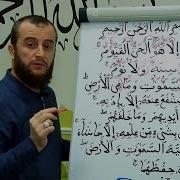 بِسْمِ اللهِ الرَّحْمٰنِ الرَّحِيْمِ
إِلٰهَ إِلَّا هُوَ الْحَيُّ الْقَيُّوْمُ
سِنَةٌ وَلَا نَوْمٌ
السَّمٰوٰتِ وَمَا فِي الْأَرْضِ
يَشْفَعُ عِنْدَهُ إِلَّا بِإِذْنِهِ
أَيْدِيْهِمْ وَمَا خَلْفَهُمْ
بِشَيْءٍ مِنْ عِلْمِهِ إِلَّا بِمَا شَاءَ
السَّمٰوٰتِ وَالْأَرْضَ
حِفْظُهُمَا